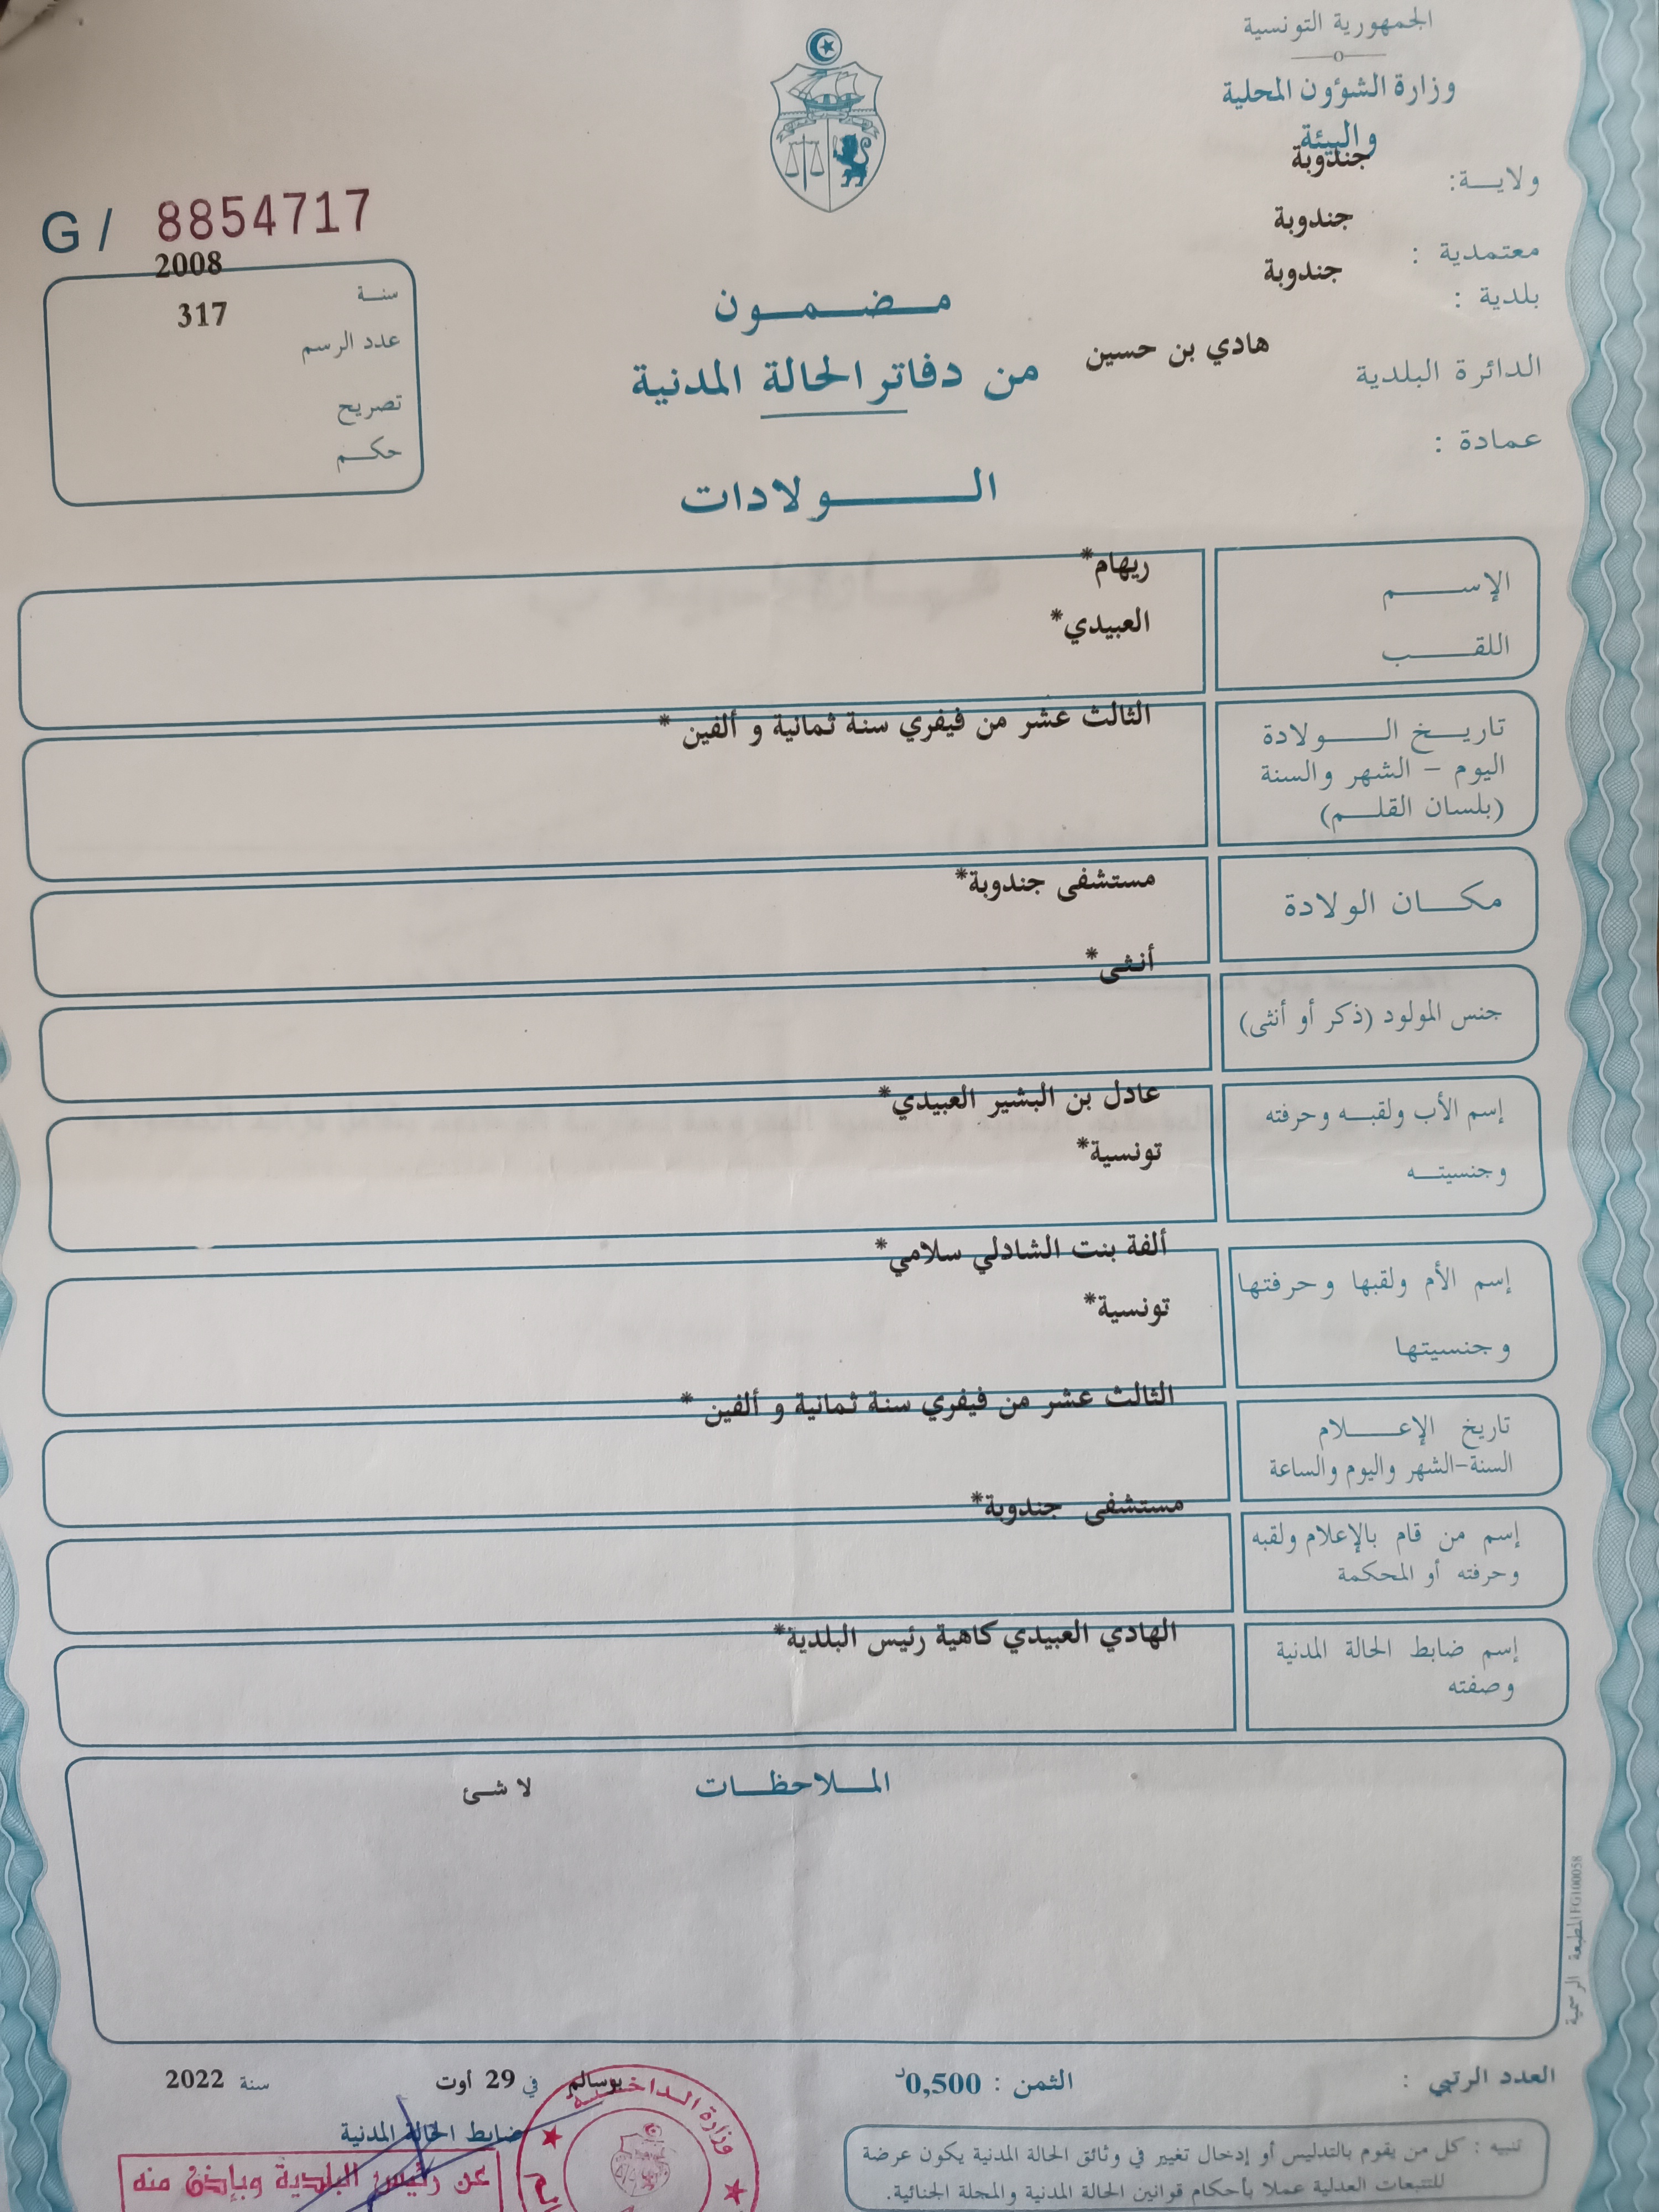 الجمهورية التونسية
وزارة الشؤون المحلية
والبيئة
ولاية: جندوبة
معتمدية : جندوبة
بلدية : جندوبة
الدائرة البلدية هادي بن حسين
عمادة :
G / 8854717
سنة 2008
عدد الرسم 317
تصريح
حكم
مضمون
من دفاتر الحالة المدنية
الولادات
الإسم ريهام*
اللقب العبيدي*
تاريخ الولادة
اليوم - الشهر والسنة
(بلسان القلم)
الثالث عشر من فيفري سنة ثمانية و ألفين *
مكان الولادة
مستشفى جندوبة*
جنس المولود (ذكر أو أنثى)
أنثى*
إسم الأب ولقبه وحرفته
وجنسيته
عادل بن البشير العبيدي*
تونسية*
إسم الأم ولقبها وحرفتها
وجنسيتها
ألفة بنت الشادلي سلامي*
تونسية*
تاريخ الإعلام
السنة-الشهر واليوم والساعة
الثالث عشر من فيفري سنة ثمانية و ألفين *
إسم من قام بالإعلام ولقبه
وحرفته أو المحكمة
مستشفى جندوبة*
إسم ضابط الحالة المدنية
وصفته
الهادي العبيدي كاهية رئيس البلدية*
الملاحظات
لا شئ
المطبعة الرسمية FG100058
العدد الرتبي :
الثمن : 0,500د
بوسالم في 29 أوت سنة 2022
ضابط الحالة المدنية
عن رئيس البلدية وبإذن منه
وزارة الداخلية
تنبيه : كل من يقوم بالتدليس أو إدخال تغيير في وثائق الحالة المدنية يكون عرضة
للتتبعات العدلية عملا بأحكام قوانين الحالة المدنية والمجلة الجنائية.